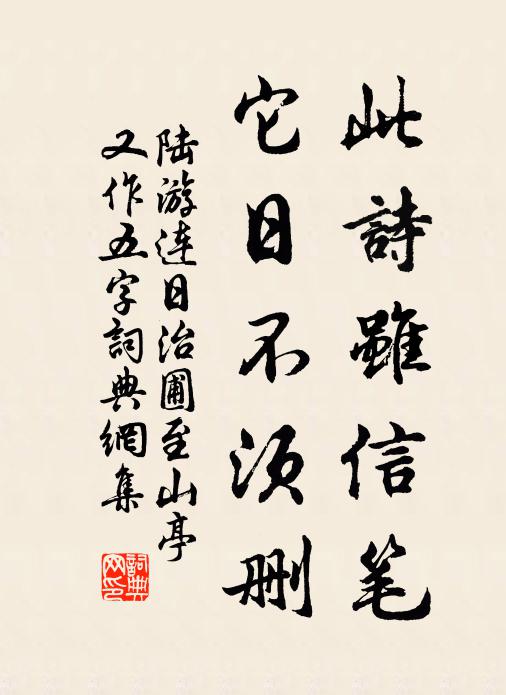 此詩雖信笔
它日不须删
陆游連日治圃至山亭
又作五字詞典網集
詞典网印